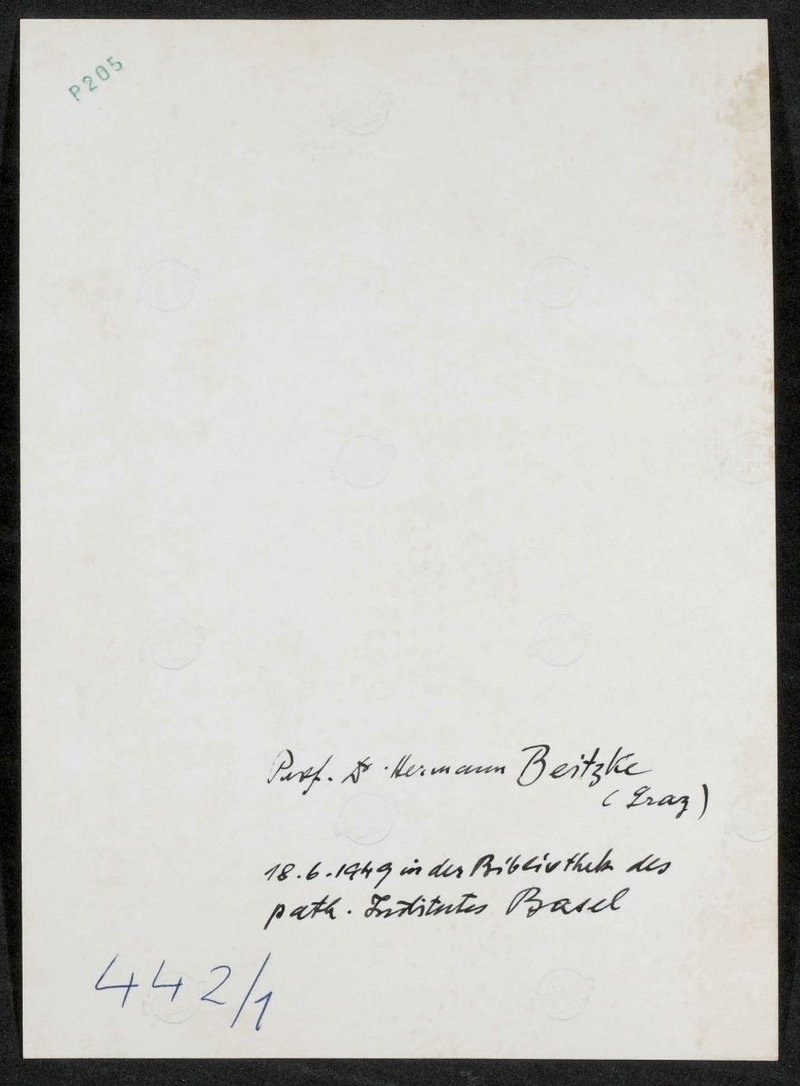 P205
Prof. Dr. Hermann Beitzke
(Graz)
18.6.1949 in der Bibliothek des
path. Institutes Basel
442/1